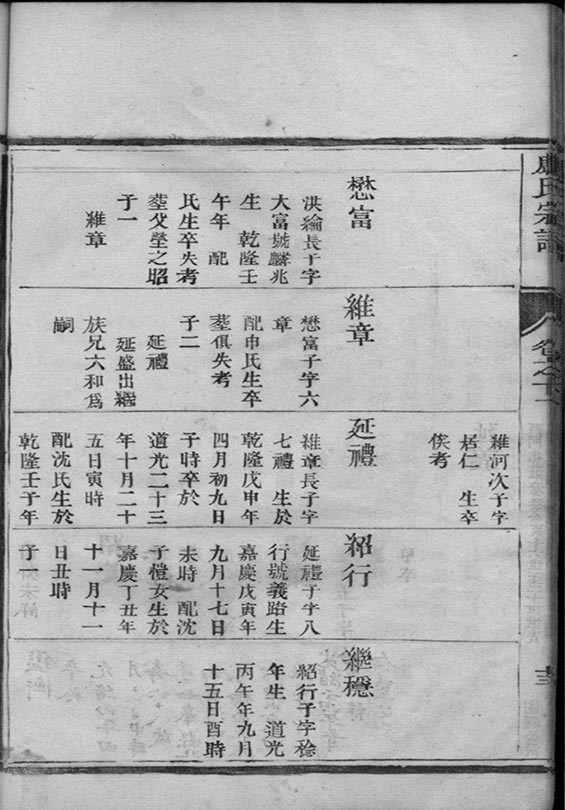 氏宗譜
卷之十
懋富
洪綸長子字
大富號麟兆
生 乾隆壬
午年 配
氏生卒失考
塟父塋之昭
子一
維章
維章
懋富子字六
章
配申氏生卒
塟俱失考
子二
延禮
延盛出繼
族兄六和爲
嗣
維河次子字
居仁 生卒
俟考
延禮
維章長子字
七禮 生於
乾隆戊申年
四月初九日
子時卒於
道光二十三
年十月二十
五日寅時
配沈氏生於
乾隆壬子年
紹行
延禮子字八
行號義路生
嘉慶戊寅年
九月十七日
未時 配沈
子愷女生於
嘉慶丁丑年
十一月十一
日丑時
子一
繼穩
紹行子字稔
年生 道光
丙午年九月
十五日酉時